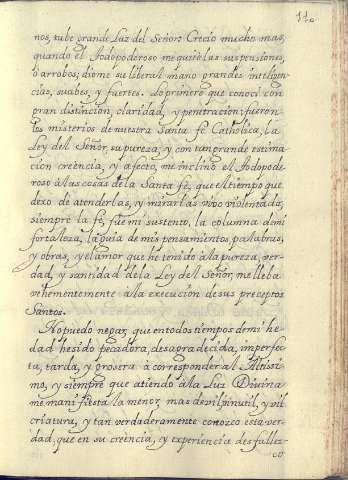 11.
nos, tube grande Luz del Señor: Crecio mucho mas,
quando el Todopoderoso me quitó las suspensiones,
ò arrobos; diome su liberal mano grandes inteligen-
cias, suabes, y fuertes. Lo primero que conoci con
gran distincion, claridad, y penetracion; fueron
los misterios de nuestra Santa fè Catholica, la
Ley del Señor, su pureza; y con tan grande estima-
cion creencia, y afecto, me inclinò el Todopode-
roso à las cosas de la Santa fè, que el tiempo que
dexo de atenderlas, y mirarlas vivo violentada;
siempre la fè, fue mi sustento, la columna de mi
fortaleza, la guia de mis pensamientos palabras,
y obras, y el amor que he tenido à la pureza, ver-
dad, y santidad de la Ley del Señor, me lleba
vehementemente à la execucion de sus preceptos
Santos.
No puedo negar, que en todos tiempos de mi he-
dad he sido pecadora, desagradecida, imperfec-
ta, tarda, y grosera à corresponder al Altisi-
mo, y siempre que atiendo à la Luz Divina
me manifiesta la menor, mas des vil pinutil, y vil
criatura, y tan verdaderamente conozco esta ver-
dad, que en su creencia, y experiencia desfallez-
co